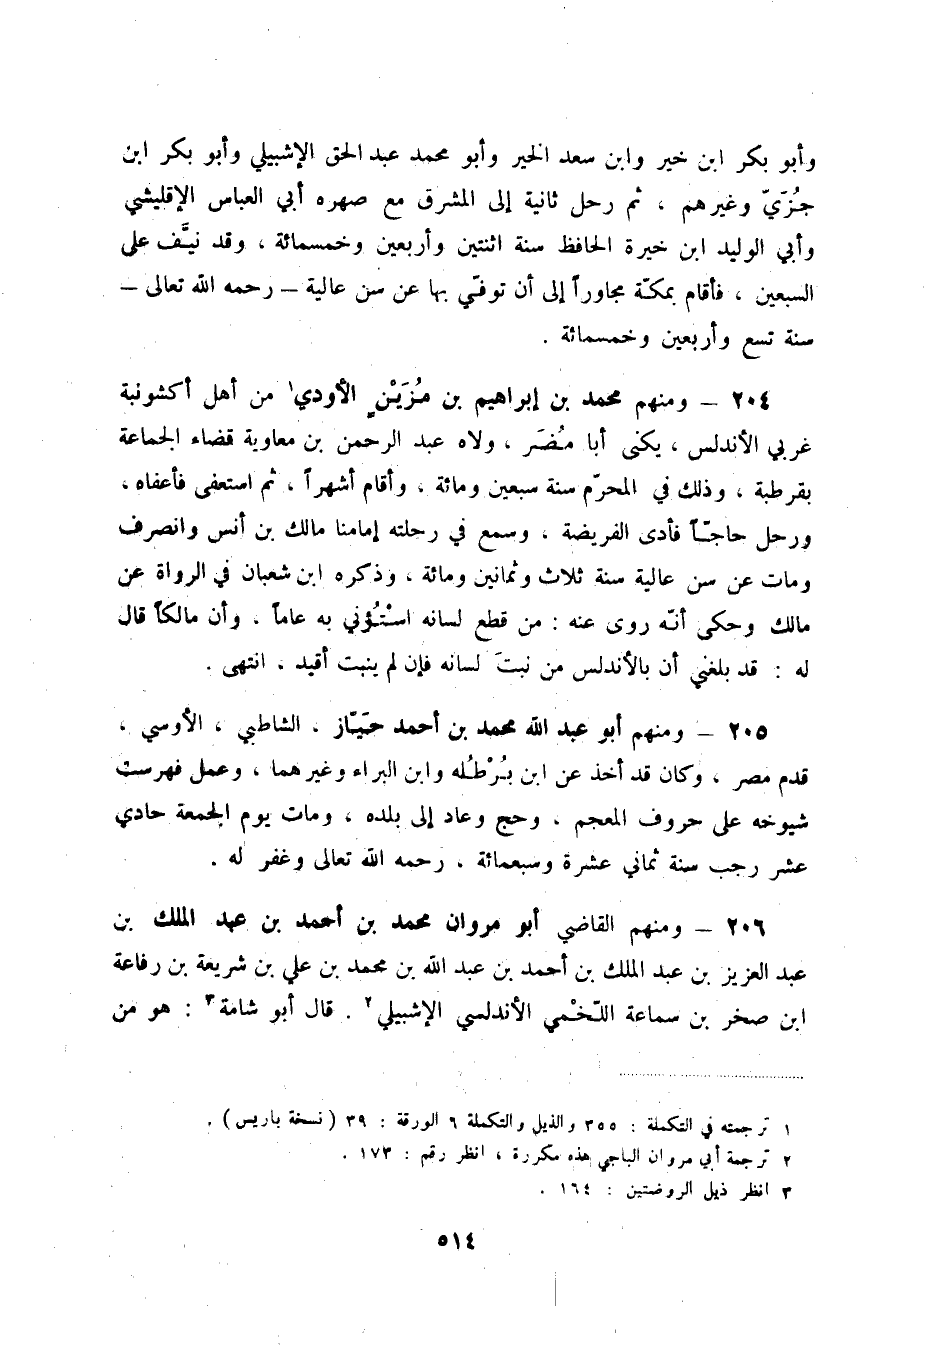 وأبو بكر ابن خير وابن سعد الخير وأبو محمد عبد الحق الإشبيلي وأبو بكر ابن
جُزَيّ وغيرهم ، ثم رحل ثانية إلى المشرق مع صهره أبي العباس الإقليشي
وأبي الوليد ابن خيرة الحافظ سنة اثنتين وأربعين وخمسمائة ، وقد نيَّف على
السبعين ، فأقام بمكّة مجاوراً إلى أن توفّي بها عن سن عالية – رحمه الله تعالى –
سنة تسع وأربعين وخمسمائة .
٢٠٤ – ومنهم محمد بن إبراهيم بن مُزَيْنٍ الأودي١ من أهل أكشونبة
غربي الأندلس ، يكنى أبا مُضَر ، ولاه عبد الرحمن بن معاوية قضاء الجماعة
بقرطبة ، وذلك في المحرّم سنة سبعين ومائة ، وأقام أشهراً ، ثم استعفى فأعفاه ،
ورحل حاجّاً فأدى الفريضة ، وسمع في رحلته إمامنا مالك بن أنس وانصرف
ومات عن سن عالية سنة ثلاث وثمانين ومائة ، وذكره ابن شعبان في الرواة عن
مالك وحكى أنّه روى عنه : من قطع لسانه استُؤني به عاماً ، وأن مالكاً قال
له : قد بلغني أن بالأندلس من نبتَ لسانه فإن لم ينبت أقيد ، انتهى .
٢٠٥ – ومنهم أبو عبد الله محمد بن أحمد حيّاز ، الشاطبي ، الأوسي ،
قدم مصر ، وكان قد أخذ عن ابن بُرْطُله وابن البراء وغيرهما ، وعمل فهرست
شيوخه على حروف المعجم ، وحج وعاد إلى بلده ، ومات يوم الجمعة حادي
عشر رجب سنة ثماني عشرة وسبعمائة ، رحمه الله تعالى وغفر له .
٢٠٦ – ومنهم القاضي أبو مروان محمد بن أحمد بن عبد الملك بن
عبد العزيز بن عبد الملك بن أحمد بن عبد الله بن محمد بن علي بن شريعة بن رفاعة
ابن صخر بن سماعة اللّخْمي الأندلسي الإشبيلي٢ . قال أبو شامة٣ : هو من
١ ترجمته في التكملة : ٣٥٥ والذيل والتكملة ٦ الورقة : ٣٩ ( نسخة باريس ) .
٢ ترجمة أبي مروان الباجي هذه مكررة ، انظر رقم : ١٧٣ .
٣ انظر ذيل الروضتين : ١٦٤ .
٥١٤